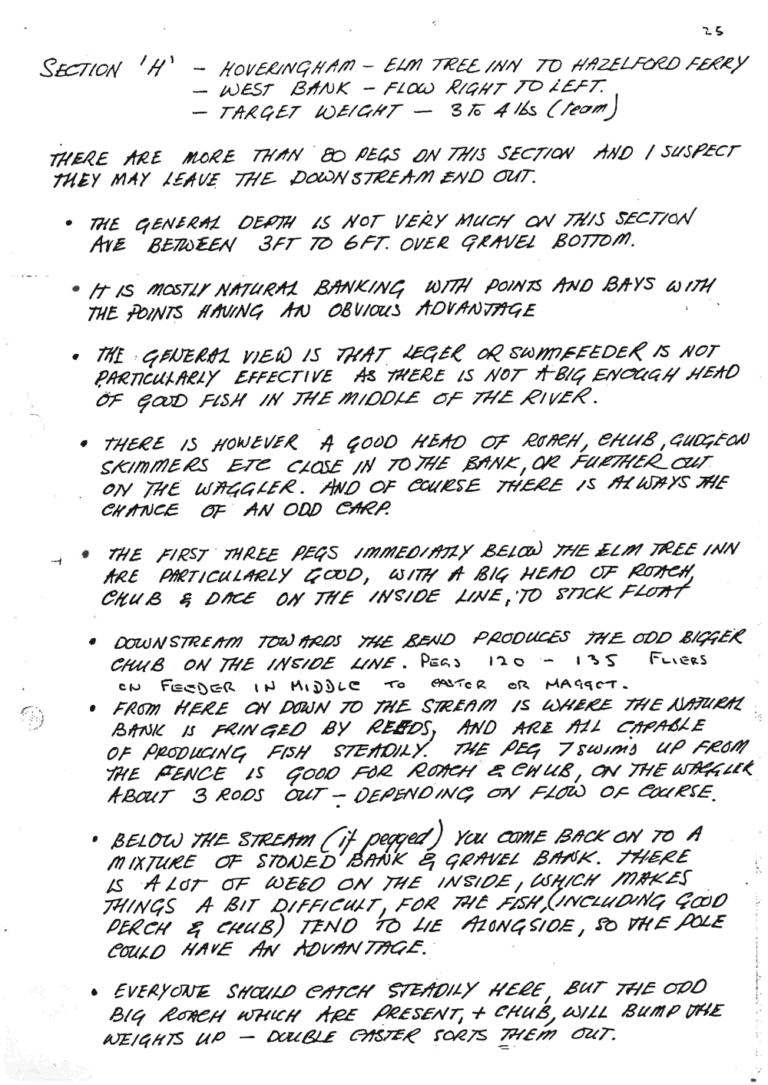 25
SECTION 'H' - HOVERINGHAM - ELM TREE INN TO HAZELFORD FERRY
- WEST BANK - FLOW RIGHT TO LEFT.
- TARGET WEIGHT - 3 TO 4 lbs (team)
THERE ARE MORE THAN 80 PEGS ON THIS SECTION AND I SUSPECT
THEY MAY LEAVE THE DOWNSTREAM END OUT.
• THE GENERAL DEPTH IS NOT VERY MUCH ON THIS SECTION
AVE BETWEEN 3FT TO 6FT. OVER GRAVEL BOTTOM.
• IT IS MOSTLY NATURAL BANKING WITH POINTS AND BAYS WITH
THE POINTS HAVING AN OBVIOUS ADVANTAGE
• THE GENERAL VIEW IS THAT LEGER OR SWIMFEEDER IS NOT
PARTICULARLY EFFECTIVE AS THERE IS NOT A BIG ENOUGH HEAD
OF GOOD FISH IN THE MIDDLE OF THE RIVER.
• THERE IS HOWEVER A GOOD HEAD OF ROACH, CHUB, GUDGEON
SKIMMERS ETC CLOSE IN TO THE BANK, OR FURTHER OUT
ON THE WAGGLER. AND OF COURSE THERE IS ALWAYS THE
CHANCE OF AN ODD CARP.
• THE FIRST THREE PEGS IMMEDIATLY BELOW THE ELM TREE INN
ARE PARTICULARLY GOOD, WITH A BIG HEAD OF ROACH,
CHUB & DACE ON THE INSIDE LINE, TO STICK FLOAT
• DOWNSTREAM TOWARDS THE BEND PRODUCES THE ODD BIGGER
CHUB ON THE INSIDE LINE. PEGS 120 - 135 FLIERS
ON FEEDER IN MIDDLE TO CASTER OR MAGGOT.
• FROM HERE ON DOWN TO THE STREAM IS WHERE THE NATURAL
BANK IS FRINGED BY REEDS, AND ARE ALL CAPABLE
OF PRODUCING FISH STEADILY. THE PEG 7 SWIMS UP FROM
THE FENCE IS GOOD FOR ROACH & CHUB, ON THE WAGGLER
ABOUT 3 RODS OUT - DEPENDING ON FLOW OF COURSE.
• BELOW THE STREAM (if pegged) YOU COME BACK ON TO A
MIXTURE OF STONED BANK & GRAVEL BANK. THERE
IS A LOT OF WEED ON THE INSIDE, WHICH MAKES
THINGS A BIT DIFFICULT, FOR THE FISH, (INCLUDING GOOD
PERCH & CHUB) TEND TO LIE ALONGSIDE, SO THE POLE
COULD HAVE AN ADVANTAGE.
• EVERYONE SHOULD CATCH STEADILY HERE, BUT THE ODD
BIG ROACH WHICH ARE PRESENT, + CHUB, WILL BUMP THE
WEIGHTS UP - DOUBLE CASTER SORTS THEM OUT.